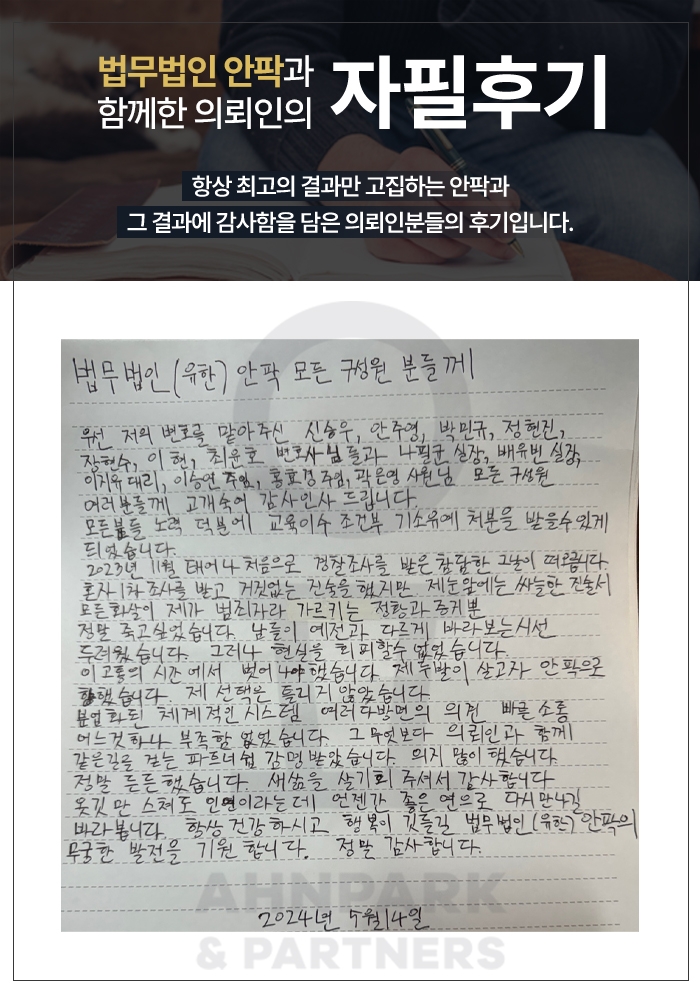 법무법인 안팍과
함께한 의뢰인의
자필후기
항상 최고의 결과만 고집하는 안팍과
그 결과에 감사함을 담은 의뢰인분들의 후기입니다.
법무법인(유한) 안팍 모든 구성원 분들께
우선 저의 변호를 맡아주신 신승우, 안주영, 박민규, 정현진,
장현수, 이 현, 최윤호 변호사님들과 나필균 실장, 배유빈 실장,
이지유 대리, 이승연 주임, 홍효경 주임, 곽은영 사원님 모든 구성원
여러분들께 고개숙여 감사인사 드립니다.
모든분들 노력 덕분에 교육이수 조건부 기소유예 처분을 받을수 있게
되었습니다.
2023년 11월 태어나 처음으로 경찰조사를 받은 참담한 그날이 떠오릅니다.
혼자 1차 조사를 받고 거짓없는 진술을 했지만 제눈앞에는 싸늘한 진술서
모든화살이 제가 범죄자라 가르키는 정황과 증거뿐
정말 죽고싶었습니다. 남들이 예전과 다르게 바라보는시선
두려웠습니다. 그러나 현실을 회피할수 없었습니다.
이 고통의 시간에서 벗어나야했습니다. 제 두발이 살고자 안팍으로
향했습니다. 제 선택은 틀리지 않았습니다.
분업화된 체계적인 시스템 여러다방면의 의견 빠른 소통
어느것하나 부족함 없었습니다. 그 무엇보다 의뢰인과 함께
같은길을 걷는 파트너쉽 감명받았습니다. 의지 많이 됐습니다.
정말 든든했습니다. 새삶을 살기회 주셔서 감사합니다
옷깃만 스쳐도 인연이라는데 언젠가 좋은 연으로 다시만나길
바라봅니다. 항상 건강하시고 행복이 깃들길 법무법인(유한) 안팍의
무궁한 발전을 기원합니다. 정말 감사합니다.
2024년 5월 14일
AHNPARK
& PARTNERS